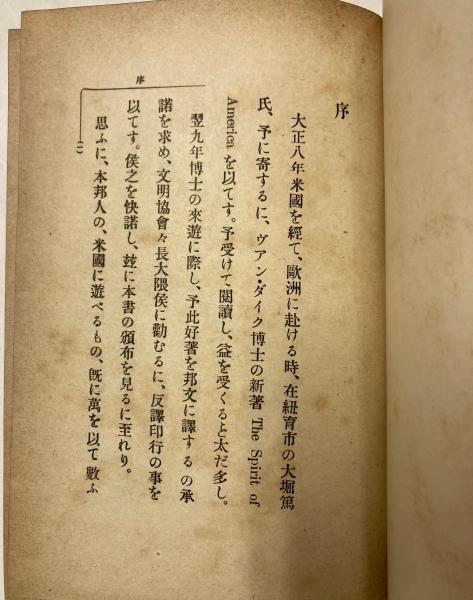 序
大正八年米國を經て、歐洲に赴ける時、在紐育市の大堀篤
氏、予に寄するに、ヴアン・ダイク博士の新著 The Spirit of
America を以てす。予受けて閲讀し、益を受くると太だ多し。
翌九年博士の來遊に際し、予此好著を邦文に譯するの承
諾を求め、文明協會々長大隈侯に勸むるに、反譯印行の事を
以てす。侯之を快諾し、玆に本書の頒布を見るに至れり。
思ふに、本邦人の、米國に遊べるもの、旣に萬を以て數ふ
序
(一)